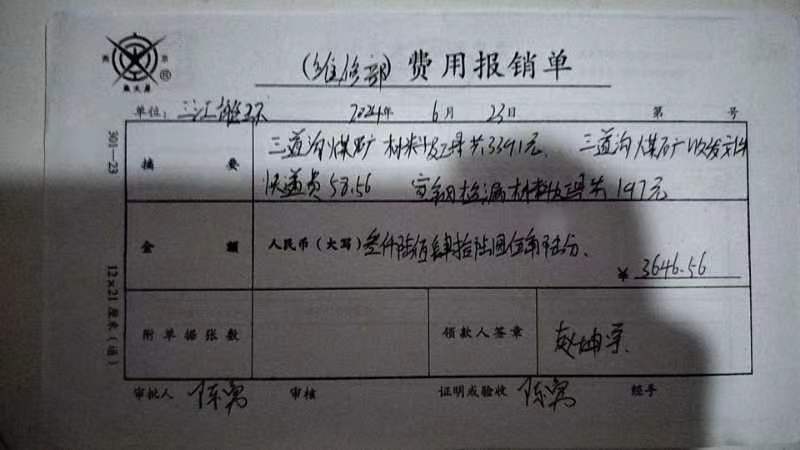 (维修部) 费用报销单
单位: 三江 2024年 6月 23日 第 号
摘要 三道沟煤矿 材料 共3391元. 三道沟煤矿收发文件
快递费58.56 检漏材料 197元
金额 人民币(大写) 叁仟陆佰肆拾陆圆伍角陆分.
¥ 3646.56
附单据张数 领款人签章 赵
审批人 陈 审核 证明或验收 陈 经手
301—23
12×21厘米(通)